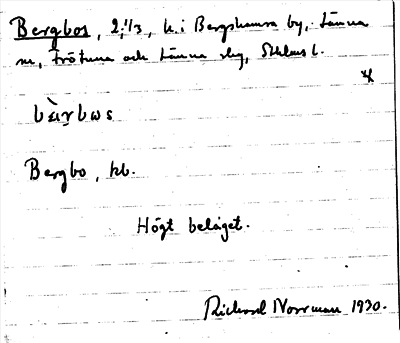 Bergbos, 2:1/3, h. i Bergshamra by, Länna
sn, Frötuna och Länna slg, Sthlms l.
bèιrbωs
Bergbo, hb.
Högt beläget.
Richard Norrman 1930.